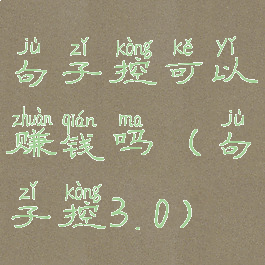 jù zǐ kòng kě yǐ
句子控可以
zhuàn qián ma jù
赚钱吗(句
zǐ kòng
子控3.0)